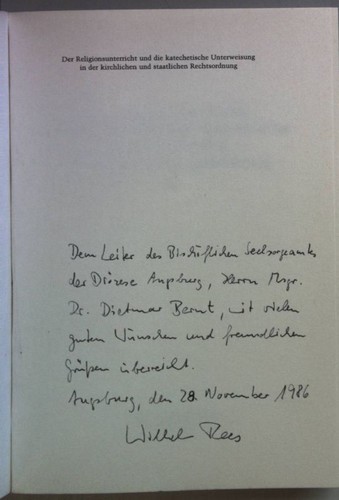 Der Religionsunterricht und die katechetische Unterweisung
in der kirchlichen und staatlichen Rechtsordnung
Dem Leiter des Bischöflichen Seelsorgeamtes
der Diözese Augsburg, Herrn Msgr.
Dr. Dietmar Bernt, mit vielen
guten Wünschen und freundlichen
Grüßen überreicht.
Augsburg, den 28. November 1986
Wilhelm Rees